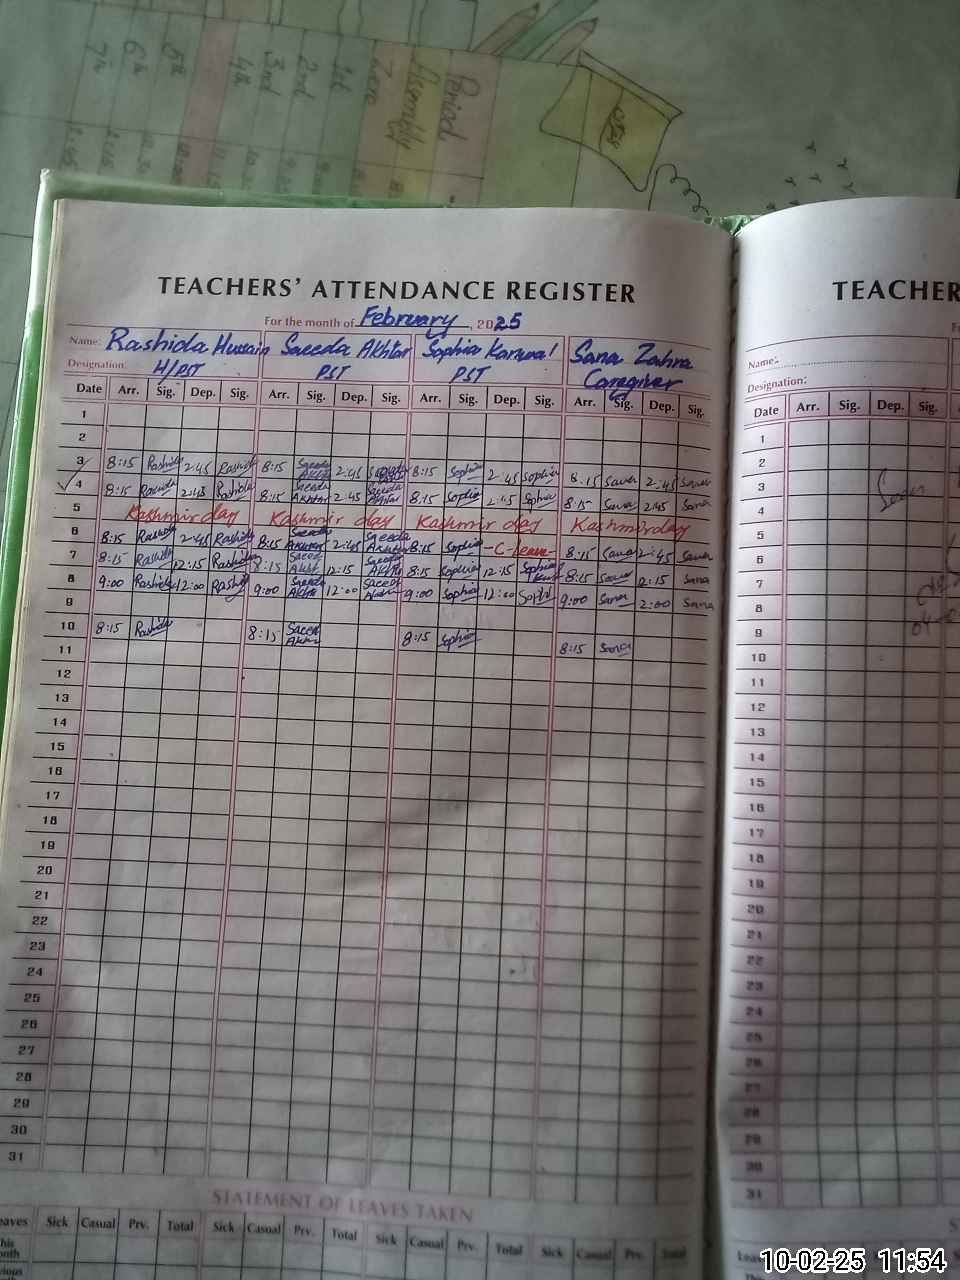 Period
Assembly
Zero
1st
2nd
3rd
4th
5th
6th
7th
TEACHERS' ATTENDANCE REGISTER
For the month of February, 2025
Name: Rashida Hussain Saeeda Akhtar Sophia Kanwal Sana Zahra
Designation: H/PST PST PST Caregiver
Date Arr. Sig. Dep. Sig. Arr. Sig. Dep. Sig. Arr. Sig. Dep. Sig. Arr. Sig. Dep. Sig.
1
2
3 8:15 Rashida 2:45 Rashida 8:15 Saeeda Akhtar 2:45 Saeeda 8:15 Sophia 2:45 Sophia 8:15 Sana 2:45 Sana
4 8:15 Rashida 2:45 Rashida 8:15 Saeeda Akhtar 2:45 Saeeda Akhtar 8:15 Sophia 2:45 Sophia 8:15 Sana 2:45 Sana
5 Kashmir day Kashmir day Kashmir day Kashmir day
6 8:15 Rashida 2:45 Rashida 8:15 Saeeda Akhtar 2:45 Saeeda Akhtar 8:15 Sophia -C-leave- 8:15 Sana 2:45 Sana
7 8:15 Rashida 12:15 Rashida 8:15 Saeeda Akht 12:15 Saeeda Akhtar 8:15 Sophia 12:15 Sophia 8:15 Sana 12:15 Sana
8 9:00 Rashida 12:00 Rashida 9:00 Saeeda Akhtar 12:00 Saeeda Akhtar 9:00 Sophia 12:00 Sophia 9:00 Sana 2:00 Sana
9
10 8:15 Rashida 8:15 Saeeda Akhtar 8:15 Sophia 8:15 Sana
11
12
13
14
15
16
17
18
19
20
21
22
23
24
25
26
27
28
29
30
31
STATEMENT OF LEAVES TAKEN
eaves Sick Casual Prv. Total Sick Casual Prv. Total Sick Casual Prv. Total Sick Casual Prv. Total
his
onth
vious
TEACHER
Name:
Designation:
Date Arr. Sig. Dep. Sig.
1
2
3
4
5
6
7
8
9
10
11
12
13
14
15
16
17
18
19
20
21
22
23
24
25
26
27
28
29
30
31
S
Leaves Sick Casual Prv. Total
10-02-25 11:54